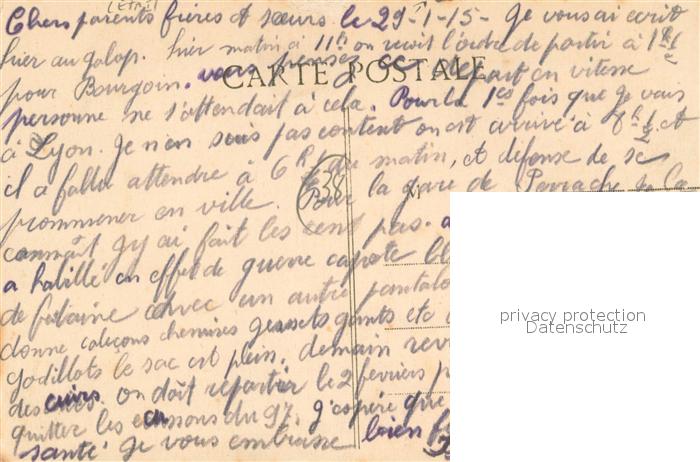 Chers parents frères et sœurs le 29-1-15- Je vous ai ecrit
hier au galop. hier matin à 11h on recoit l'ordre de partir à 1h ½
pour Bourgoin. vous pensez depart en vitesse
CARTE POSTALE
personne ne s'attendait à cela. Pour la 1es fois que je vais
à Lyon. Je n'en suis pas content on est arrivé à 8h ½ et
il a fallu attendre à 6h du matin, et défense de se
prommener en ville. Pour la gare de Perrache je la
connaît j'y ai fait les cent pas.
a habillé en effet de guerre capote
de futaine avec un autre pantalo
donne caleçons chemises gants etc
godillots le sac est plein. demain
des cuirs on doit repartir le 2 fevriers
quitter les écussons du 97. J'espère que
santé Je vous embrasse bien
38
privacy protection
Datenschutz